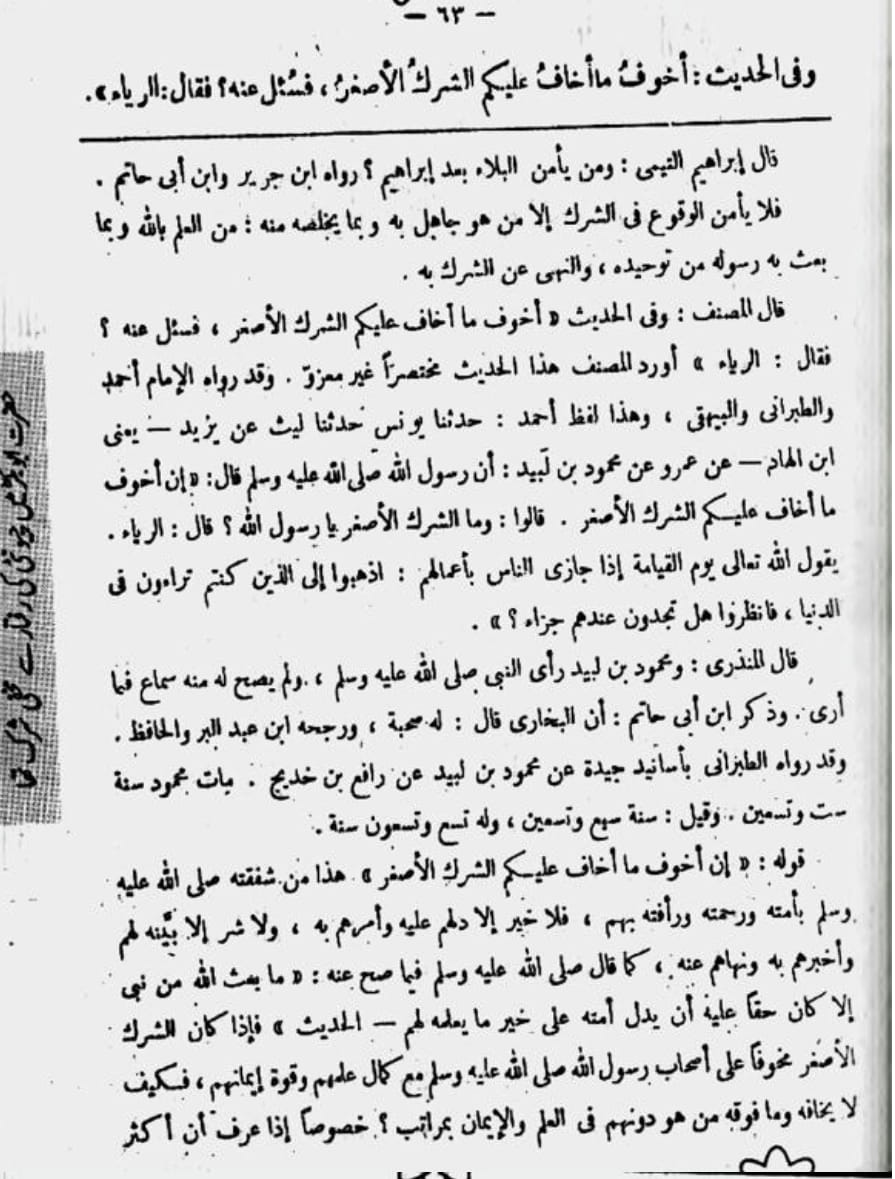 — ٦٣ —
وفى الحديث : أخوفُ ما أخافُ عليكم الشركُ الأصغرُ ، فسُئل عنه؟ فقال : الرياء » .
قال إبراهيم التيمى : ومن يأمن البلاء بعد إبراهيم ؟ رواه ابن جرير وابن أبى حاتم .
فلا يأمن الوقوع فى الشرك إلا من هو جاهل به وبما يخلصه منه : من العلم بالله وبما
بعث به رسوله من توحيده ، والنهى عن الشرك به .
قال المصنف : وفى الحديث « أخوف ما أخاف عليكم الشرك الأصغر ، فسئل عنه ؟
فقال : الرياء » أورد المصنف هذا الحديث مختصراً غير معزوّ . وقد رواه الإمام أحمد
والطبرانى والبيهقى ، وهذا لفظ أحمد : حدثنا يونس حدثنا ليث عن يزيد — يعنى
ابن الهاد — عن عمرو عن محمود بن لَبيد : أن رسول الله صلى الله عليه وسلم قال : « إن أخوف
ما أخاف عليكم الشرك الأصغر . قالوا : وما الشرك الأصغر يا رسول الله ؟ قال : الرياء .
يقول الله تعالى يوم القيامة إذا جازى الناس بأعمالهم : اذهبوا إلى الذين كنتم تراءون فى
الدنيا ، فانظروا هل تجدون عندهم جزاء ؟ » .
قال المنذرى : ومحمود بن لبيد رأى النبى صلى الله عليه وسلم ، ولم يصح له منه سماع فيما
أرى . وذكر ابن أبى حاتم : أن البخارى قال : له صحبة ، ورجحه ابن عبد البر والحافظ .
وقد رواه الطبرانى بأسانيد جيدة عن محمود بن لبيد عن رافع بن خديج . مات محمود سنة
ست وتسعين . وقيل : سنة سبع وتسعين ، وله تسع وتسعون سنة .
قوله : « إن أخوف ما أخاف عليكم الشرك الأصغر » هذا من شفقته صلى الله عليه
وسلم بأمته ورحمته ورأفته بهم ، فلا خير إلا دلهم عليه وأمرهم به ، ولا شر إلا بيَّنه لهم
وأخبرهم به ونهاهم عنه ، كما قال صلى الله عليه وسلم فيما صح عنه : « ما بعث الله من نبى
إلا كان حقاً عليه أن يدل أمته على خير ما يعلمه لهم — الحديث » فإذا كان الشرك
الأصغر مخوفاً على أصحاب رسول الله صلى الله عليه وسلم مع كمال علمهم وقوة إيمانهم ، فكيف
لا يخافه وما فوقه من هو دونهم فى العلم والإيمان بمراتب ؟ خصوصاً إذا عرف أن أكثر
حضرت ابوبکرؓ میں چیونٹی کی رفتار سے مخفی شرک تھا